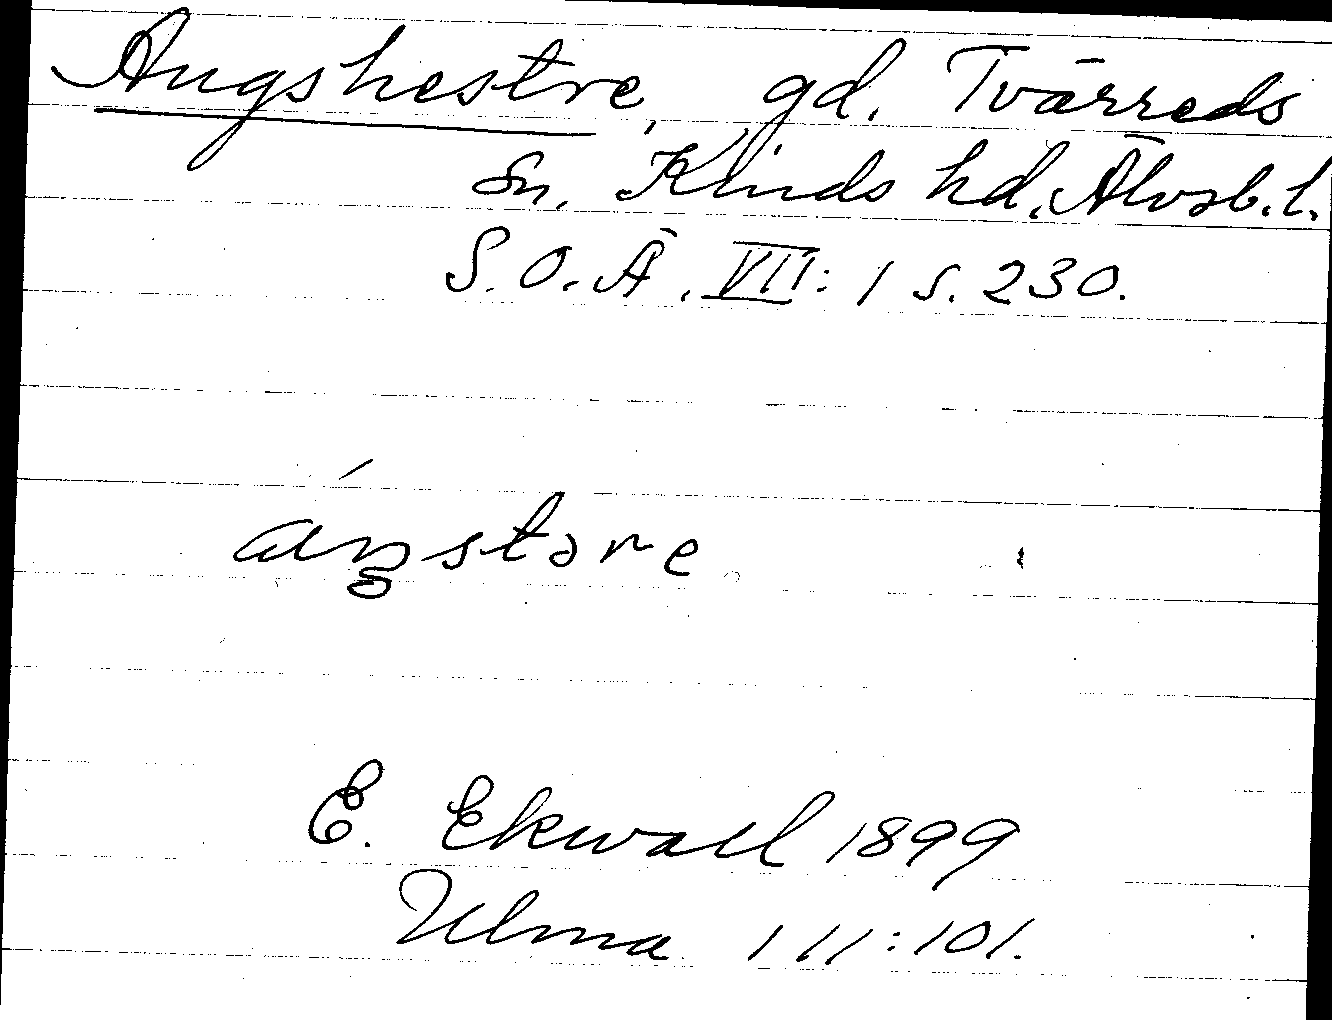 Augshestre, gd. Tvärreds
sn. Kinds hd. Älvsb. l.
S. O. Ä. VII: 1 s. 230.
áŋstəre
E. Ekwall 1899
Ulma 111:101.